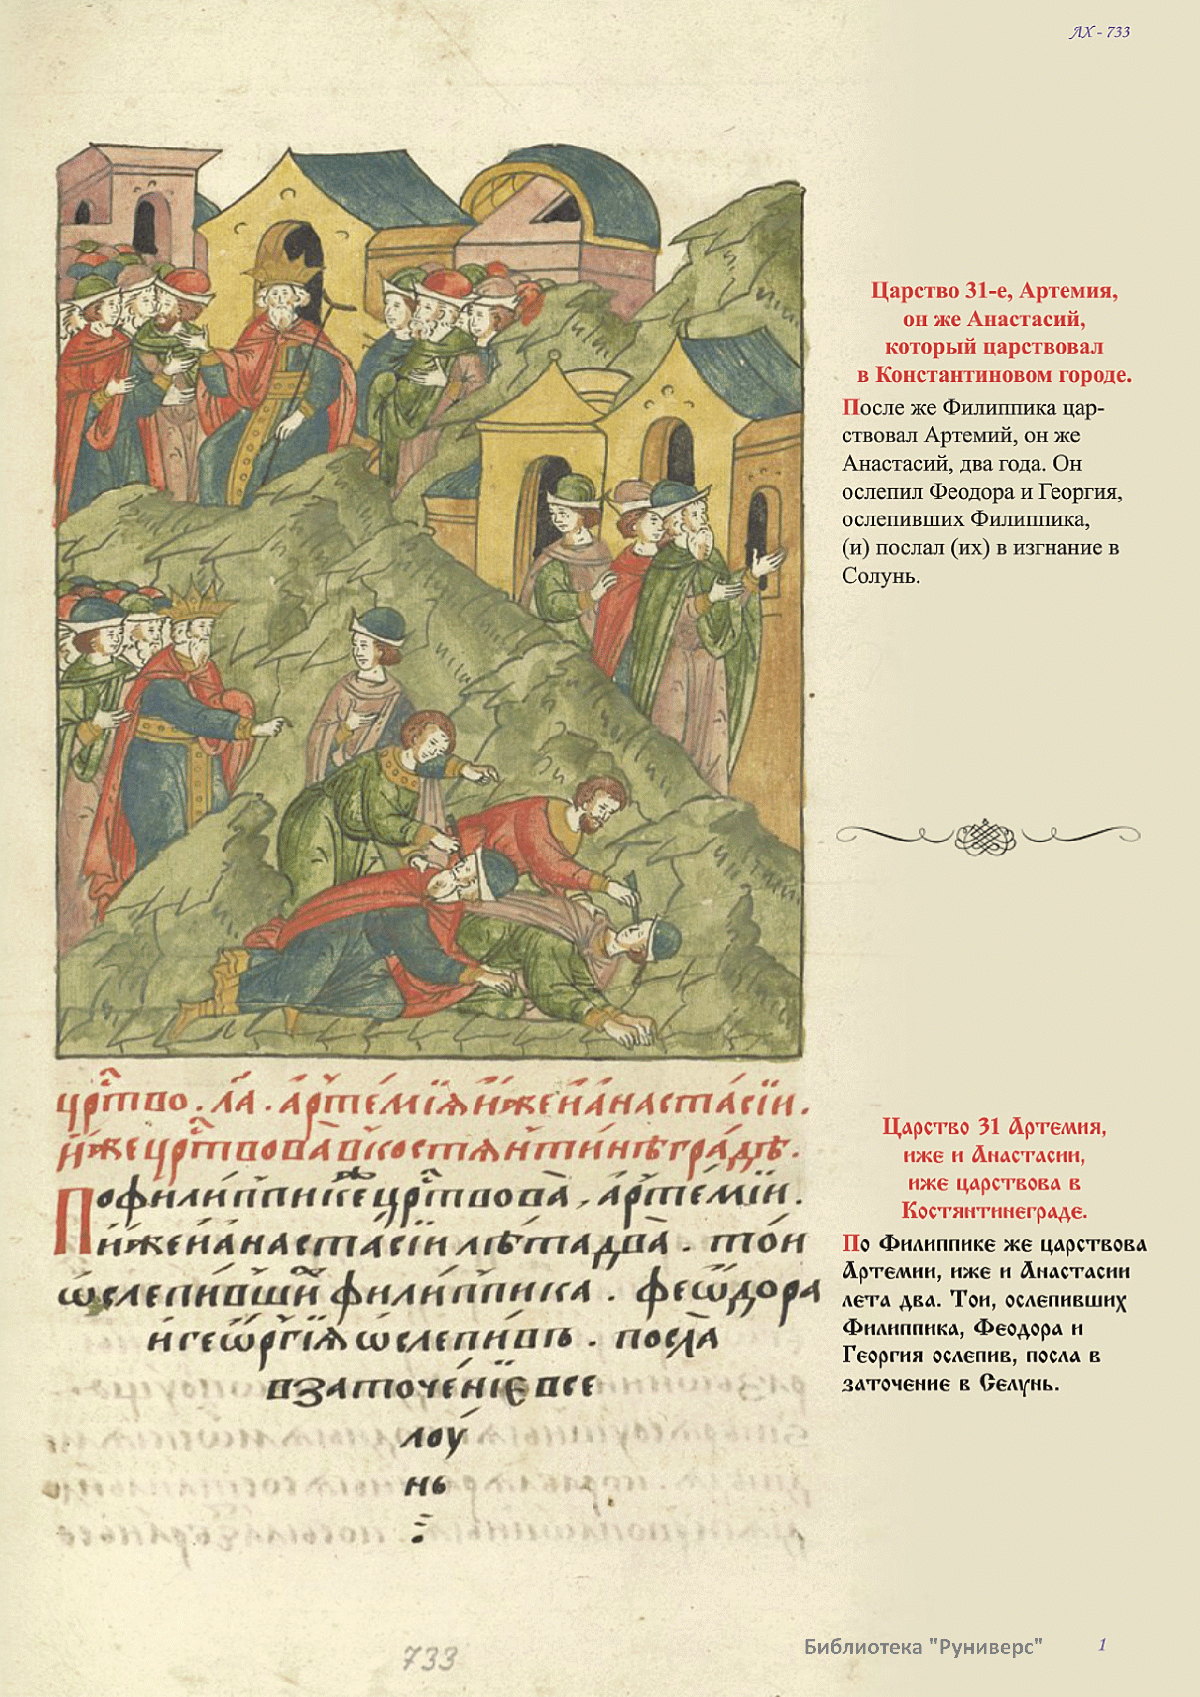 ЛХ - 733
Царство 31-е, Артемия,
он же Анастасий,
который царствовал
в Константиновом городе.
После же Филиппика цар-
ствовал Артемий, он же
Анастасий, два года. Он
ослепил Феодора и Георгия,
ослепивших Филиппика,
(и) послал (их) в изгнание в
Солунь.
црⷭ҇тво . л҃а . а҆ртемїѧ и҆же и҆ а҆настасїи .
и҆же црⷭ҇твова в костѧнтинѣградѣ .
По филиппике же црⷭ҇твова , а҆ртемїи .
и҆же и҆ а҆настасїи лѣта два . тои
ѡслепившиⷯ филиппика . феѡдора
и геѡргїѧ ѡслепивъ . посла
в заточенїе в се
лоу
нь
Царство 31 Артемия,
иже и Анастасии,
иже царствова в
Костянтинеграде.
По Филиппике же царствова
Артемии, иже и Анастасии
лета два. Тои, ослепивших
Филиппика, Феодора и
Георгия ослепив, посла в
заточение в Селунь.
733
Библиотека "Руниверс"
1